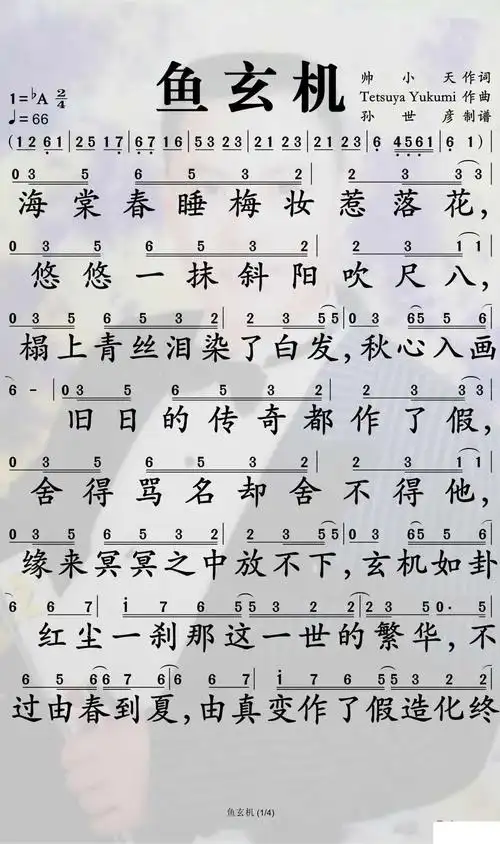 鱼玄机
1=♭A 2/4
♩=66
帅小天 作词
Tetsuya Yukumi 作曲
孙世彦 制谱
(12 61 | 25 17 | 67 16 | 53 23 | 5 3 23 | 1 23 | 5 23 | 6 4561 | 6 1)
0 3 5 | 6 5 3 2 | 2 3 3
海棠春睡梅妆惹落花，
0 3 5 | 6 5 3 2 | 2 3 1 1
悠悠一抹斜阳吹尺八，
0 3 5 6 5 3 2 | 2 3 5 5 | 0 3 65 5 6
榻上青丝泪染了白发，秋心入画
6 - | 0 3 5 | 6 5 3 2 | 2 3 3
旧日的传奇都作了假，
0 3 5 | 6 5 3 2 | 2 3 1 1
舍得骂名却舍不得他，
0 3 5 6 5 3 2 | 2 3 5 5 | 0 3 65 5 6
缘来冥冥之中放不下，玄机如卦
6 6 7 | i 7 6 5 | 5 2 3 1 2 | 2 3 5 | 0· 5
红尘一刹那这一世的繁华，不
6 5 6 5 | 6 7 6 6 7 | i 7 6 5 | 5 2 2 3
过由春到夏，由真变作了假造化终
鱼玄机 (1/4)